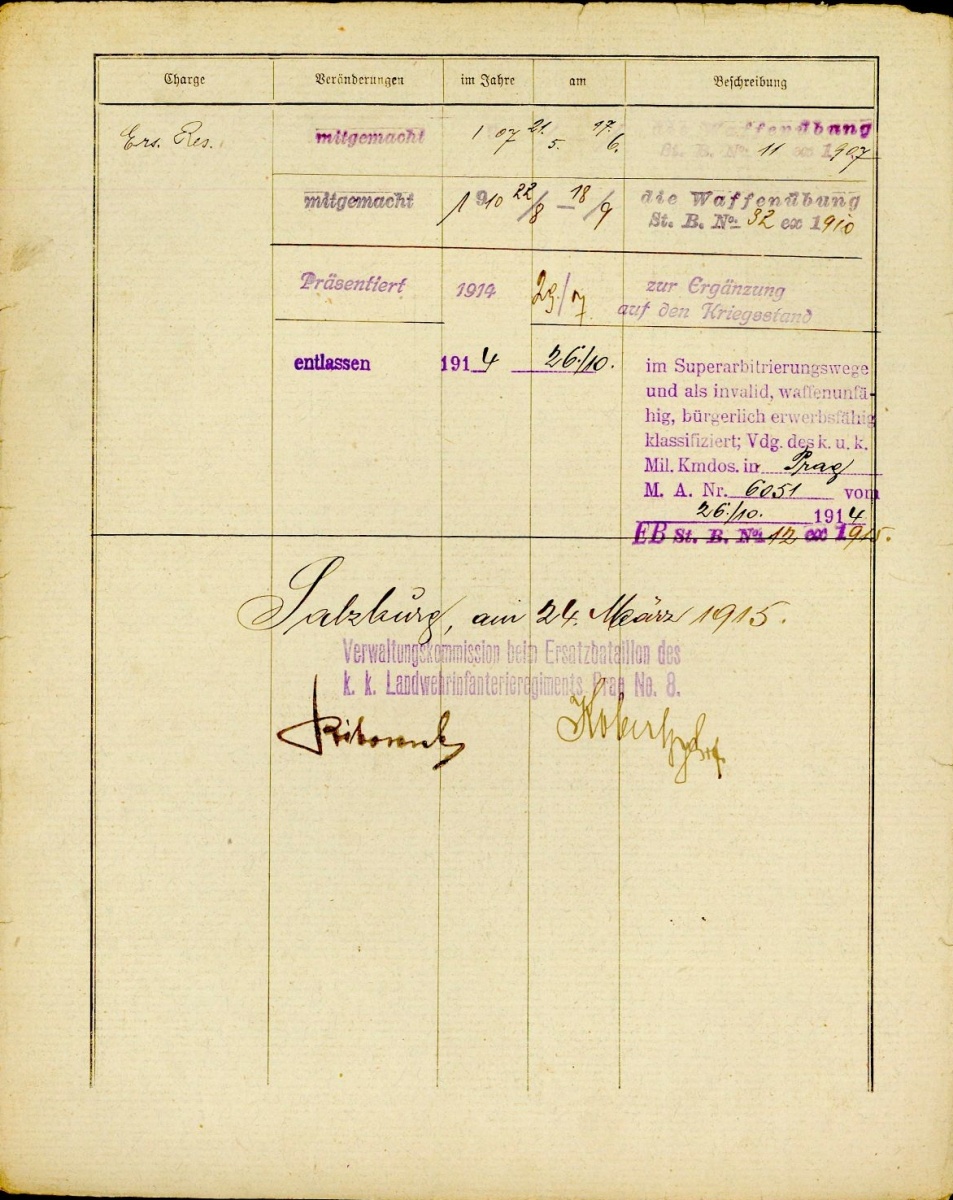 Charge Veränderungen im Jahre am Beschreibung
Ers. Res. mitgemacht 1 07 21. 5. 17. 6. die Waffenübung
St. B. No. 11 ex 1907
mitgemacht 1910 22/8 – 18/9 die Waffenübung
St. B. No. 32 ex 1910
Präsentiert 1914 29/7 zur Ergänzung
auf den Kriegsstand
entlassen 1914 26./10. im Superarbitrierungswege
und als invalid, waffenunfä-
hig, bürgerlich erwerbsfähig
klassifiziert; Vdg. des k. u. k.
Mil. Kmdos. in Prag
M. A. Nr. 6051 vom
26./10. 1914
EB St. B. No. 12 ex 1915.
Salzburg, am 24. März 1915.
Verwaltungskommission beim Ersatzbataillon des
k. k. Landwehrinfanterieregiments Prag No. 8.